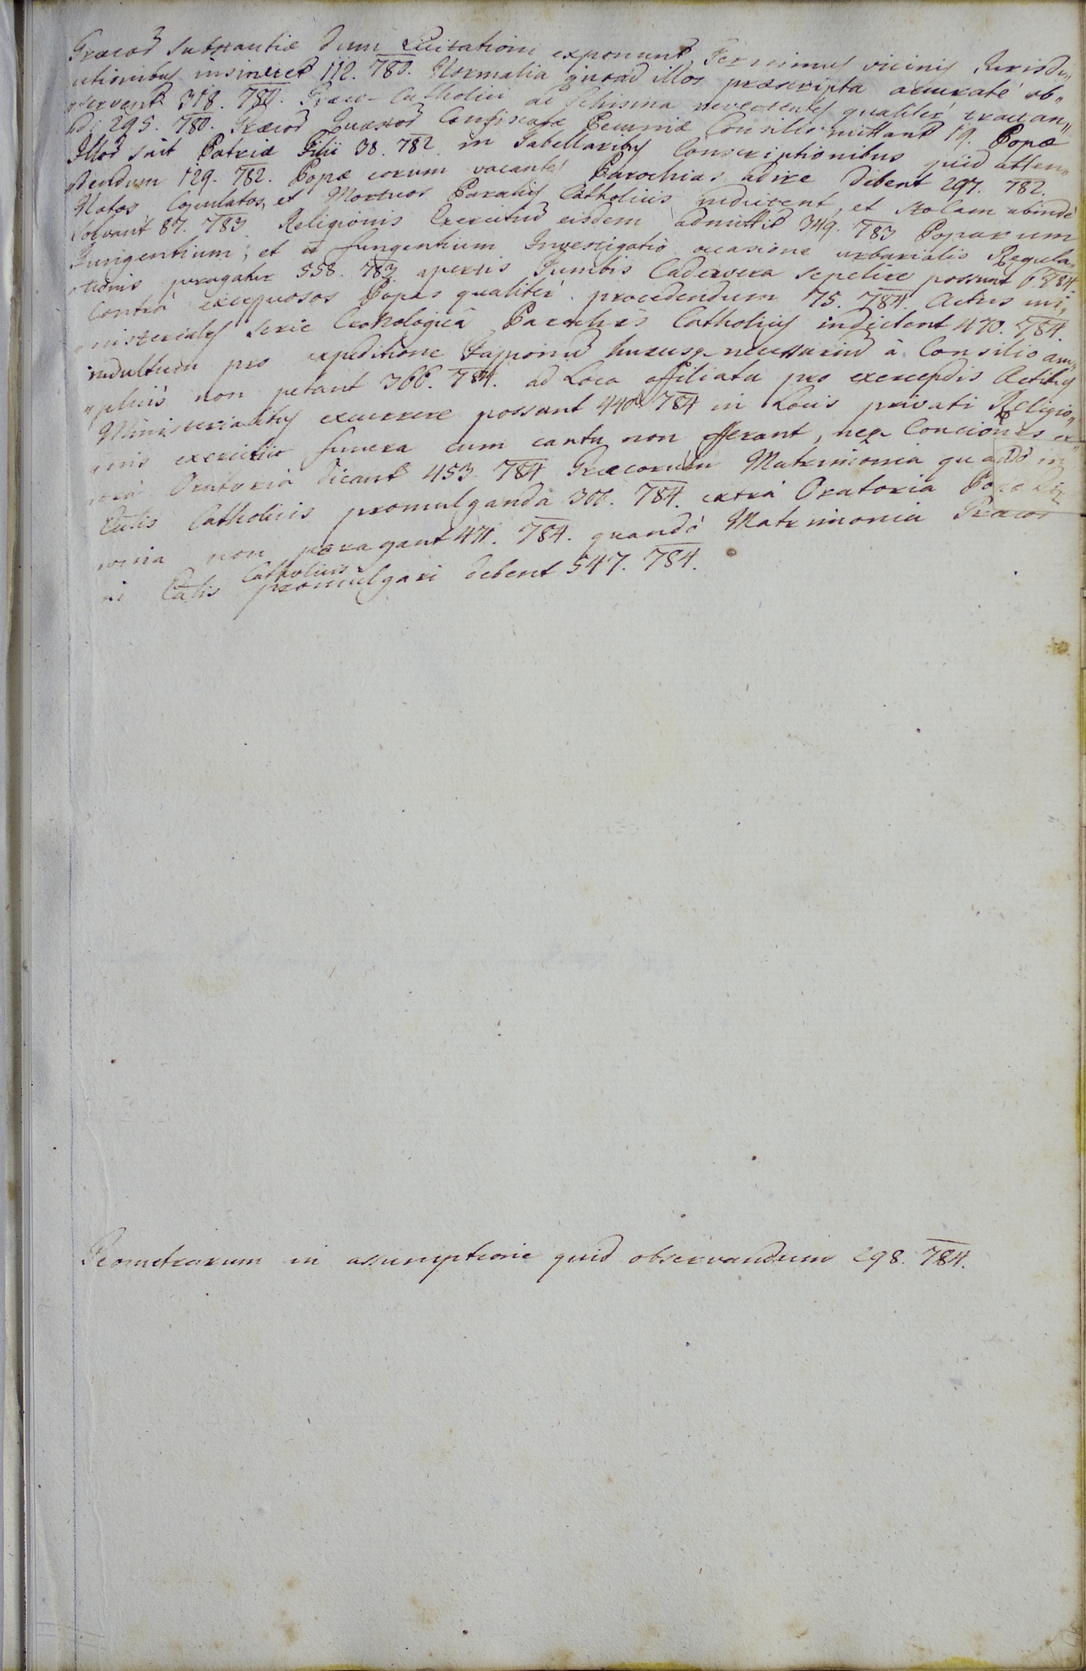 Græcoz Substantiæ dum Licitationi exponunt Terminus vicinis Jurisdi„
ctionibus insinuet 112. 780. Normalia quoad illos præscripta accuraté ob„
„servent 318. 784. Græco-Catholici ad Schisma revertentes qualitér tractan„
di 295. 780. Græcoz Quæstoz Confiscatæ Pecuniæ Consilio mittant 19. Popæ
Illoz sint Patriæ Filii 38. 782. in Tabellaribus Conscriptionibus quid atten„
„dendum 129. 782. Popæ eorum vacanté Parochias adire debent 297. 782.
Natos Copulatos, et Mortuos Parochis Catholicis indicent, et Stolam abindé
solvant 87. 783. Religionis Exercitium eisdem admittit 349. 783 Poparum
Fungentium; et non fungentium Investigatio occasione urbarialis Regula„
„tionis peragatur 558. 783 apertis Tumbis Cadavera sepelire possunt 6 784
Contrá Excequosos Popas qualitér procedendum 75. 784. Actus mi„
„nisteriales Serie Cronologicâ Parochis Catholicis indicent 470. 784.
indultum pro expeditione necessarium à Consilio am„
„plius non petant 366. 784. ad Loca affiliata pro exercendis Actibus
Ministerialibus excurrere possunt 440. 784 in Locis privati Religio„
„nis exercitio funera cum cantu non efferant, neq Conciones ex„
„trá Oratoria dicant 453. 784 Græcorum Matrimonia quando in
Ecclis Catholicis promulganda 306. 784. extrá Oratoria Popæ
non peragant 471. 784. quandó Matrimonia Græcoz
in Ecclis Catholicis promulgari debent 547. 784.
Geometrarum in assumptione quid observandum 298. 784.